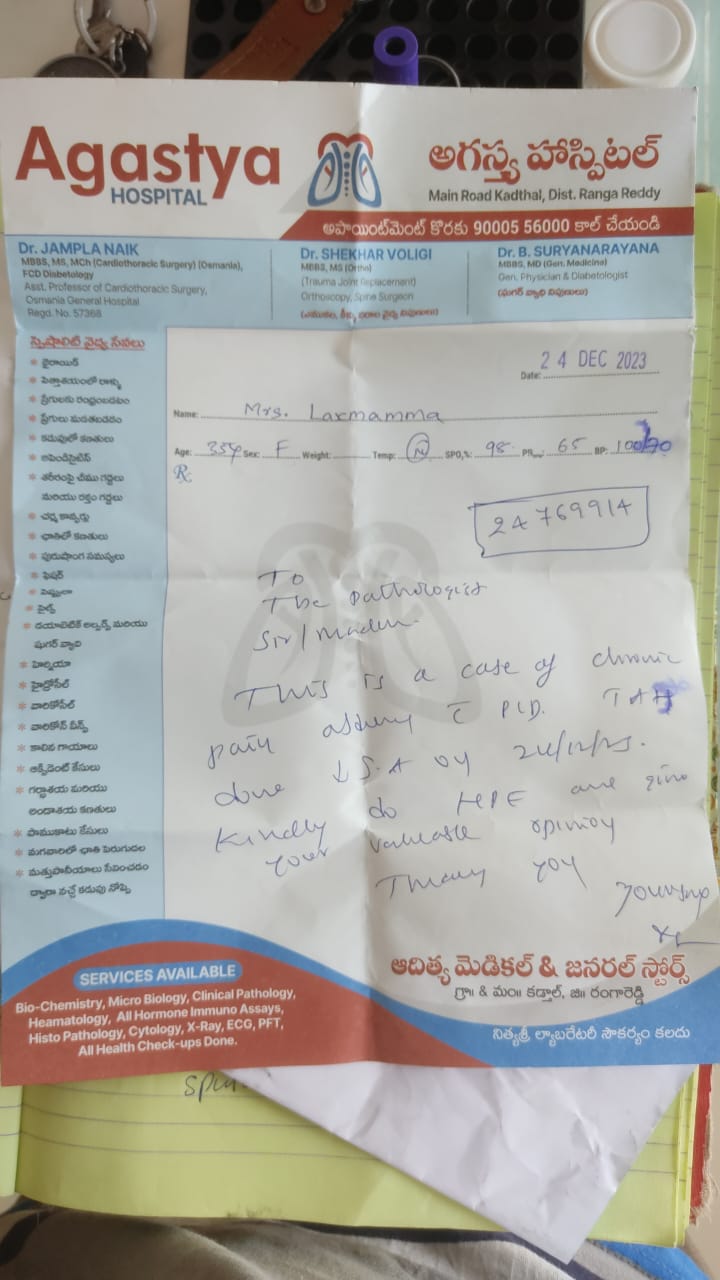 Agastya
HOSPITAL
అగస్త్య హాస్పిటల్
Main Road Kadthal, Dist. Ranga Reddy
అపాయింట్‌మెంట్ కొరకు 90005 56000 కాల్ చేయండి
Dr. JAMPLA NAIK
MBBS, MS, MCh (Cardiothoracic Surgery) (Osmania),
FCD Diabetology
Asst. Professor of Cardiothoracic Surgery,
Osmania General Hospital
Regd. No. 57368
Dr. SHEKHAR VOLIGI
MBBS, MS (Ortho)
(Trauma Joint Replacement)
Orthoscopy, Spine Surgeon
(ఎముకలు, కీళ్ళు, నరాల వైద్య నిపుణులు)
Dr. B. SURYANARAYANA
MBBS, MD (Gen. Medicine)
Gen. Physician & Diabetologist
(షుగర్ వ్యాధి నిపుణులు)
స్పెషాలిటీ వైద్య సేవలు
* థైరాయిడ్
* పిత్తాశయంలో రాళ్ళు
* ప్రేగులకు రంధ్రంపడటం
* ప్రేగులు మడతబడడం
* కడుపులో కణతులు
* అపెండిసైటిస్
* శరీరంపై చీము గడ్డలు
మరియు రక్తం గడ్డలు
* చర్మ కాన్సర్లు
* ఛాతిలో కణతులు
* పురుషాంగ సమస్యలు
* ఫిషర్
* ఫిస్టులా
* పైల్స్
* డయాబెటిక్ అల్సర్స్ మరియు
షుగర్ వ్యాధి
* హెర్నియా
* హైడ్రోసిల్
* వారికోసిల్
* వారికోస్ వీన్స్
* కాలిన గాయాలు
* ఆక్సిడెంట్ కేసులు
* గర్భాశయ మరియు
అండాశయ కణతులు
* పాముకాటు కేసులు
* మగవారిలో ఛాతి పెరుగుదల
* మత్తుపానీయాలు సేవించడం
ద్వారా వచ్చే కడుపు నొప్పి
Date: 24 DEC 2023
Name: Mrs. Laxmamma
Age: 35y Sex: F Weight: Temp: N SPO2% 98 PR 65 BP: 100/70
Rx
24769914
To
The pathologist
Sir/Madam
This is a case of chronic
pain c̄ PID. TAH
done ↓ S.A
Kindly do HPE and give
your valuable opinion
Thank you
SERVICES AVAILABLE
Bio-Chemistry, Micro Biology, Clinical Pathology,
Heamatology, All Hormone Immuno Assays,
Histo Pathology, Cytology, X-Ray, ECG, PFT,
All Health Check-ups Done.
ఆదిత్య మెడికల్ & జనరల్ స్టోర్స్
గ్రా॥ & మం॥ కడ్తాల్, జి॥ రంగారెడ్డి
నిత్యశ్రీ ల్యాబరేటరీ సౌకర్యం కలదు